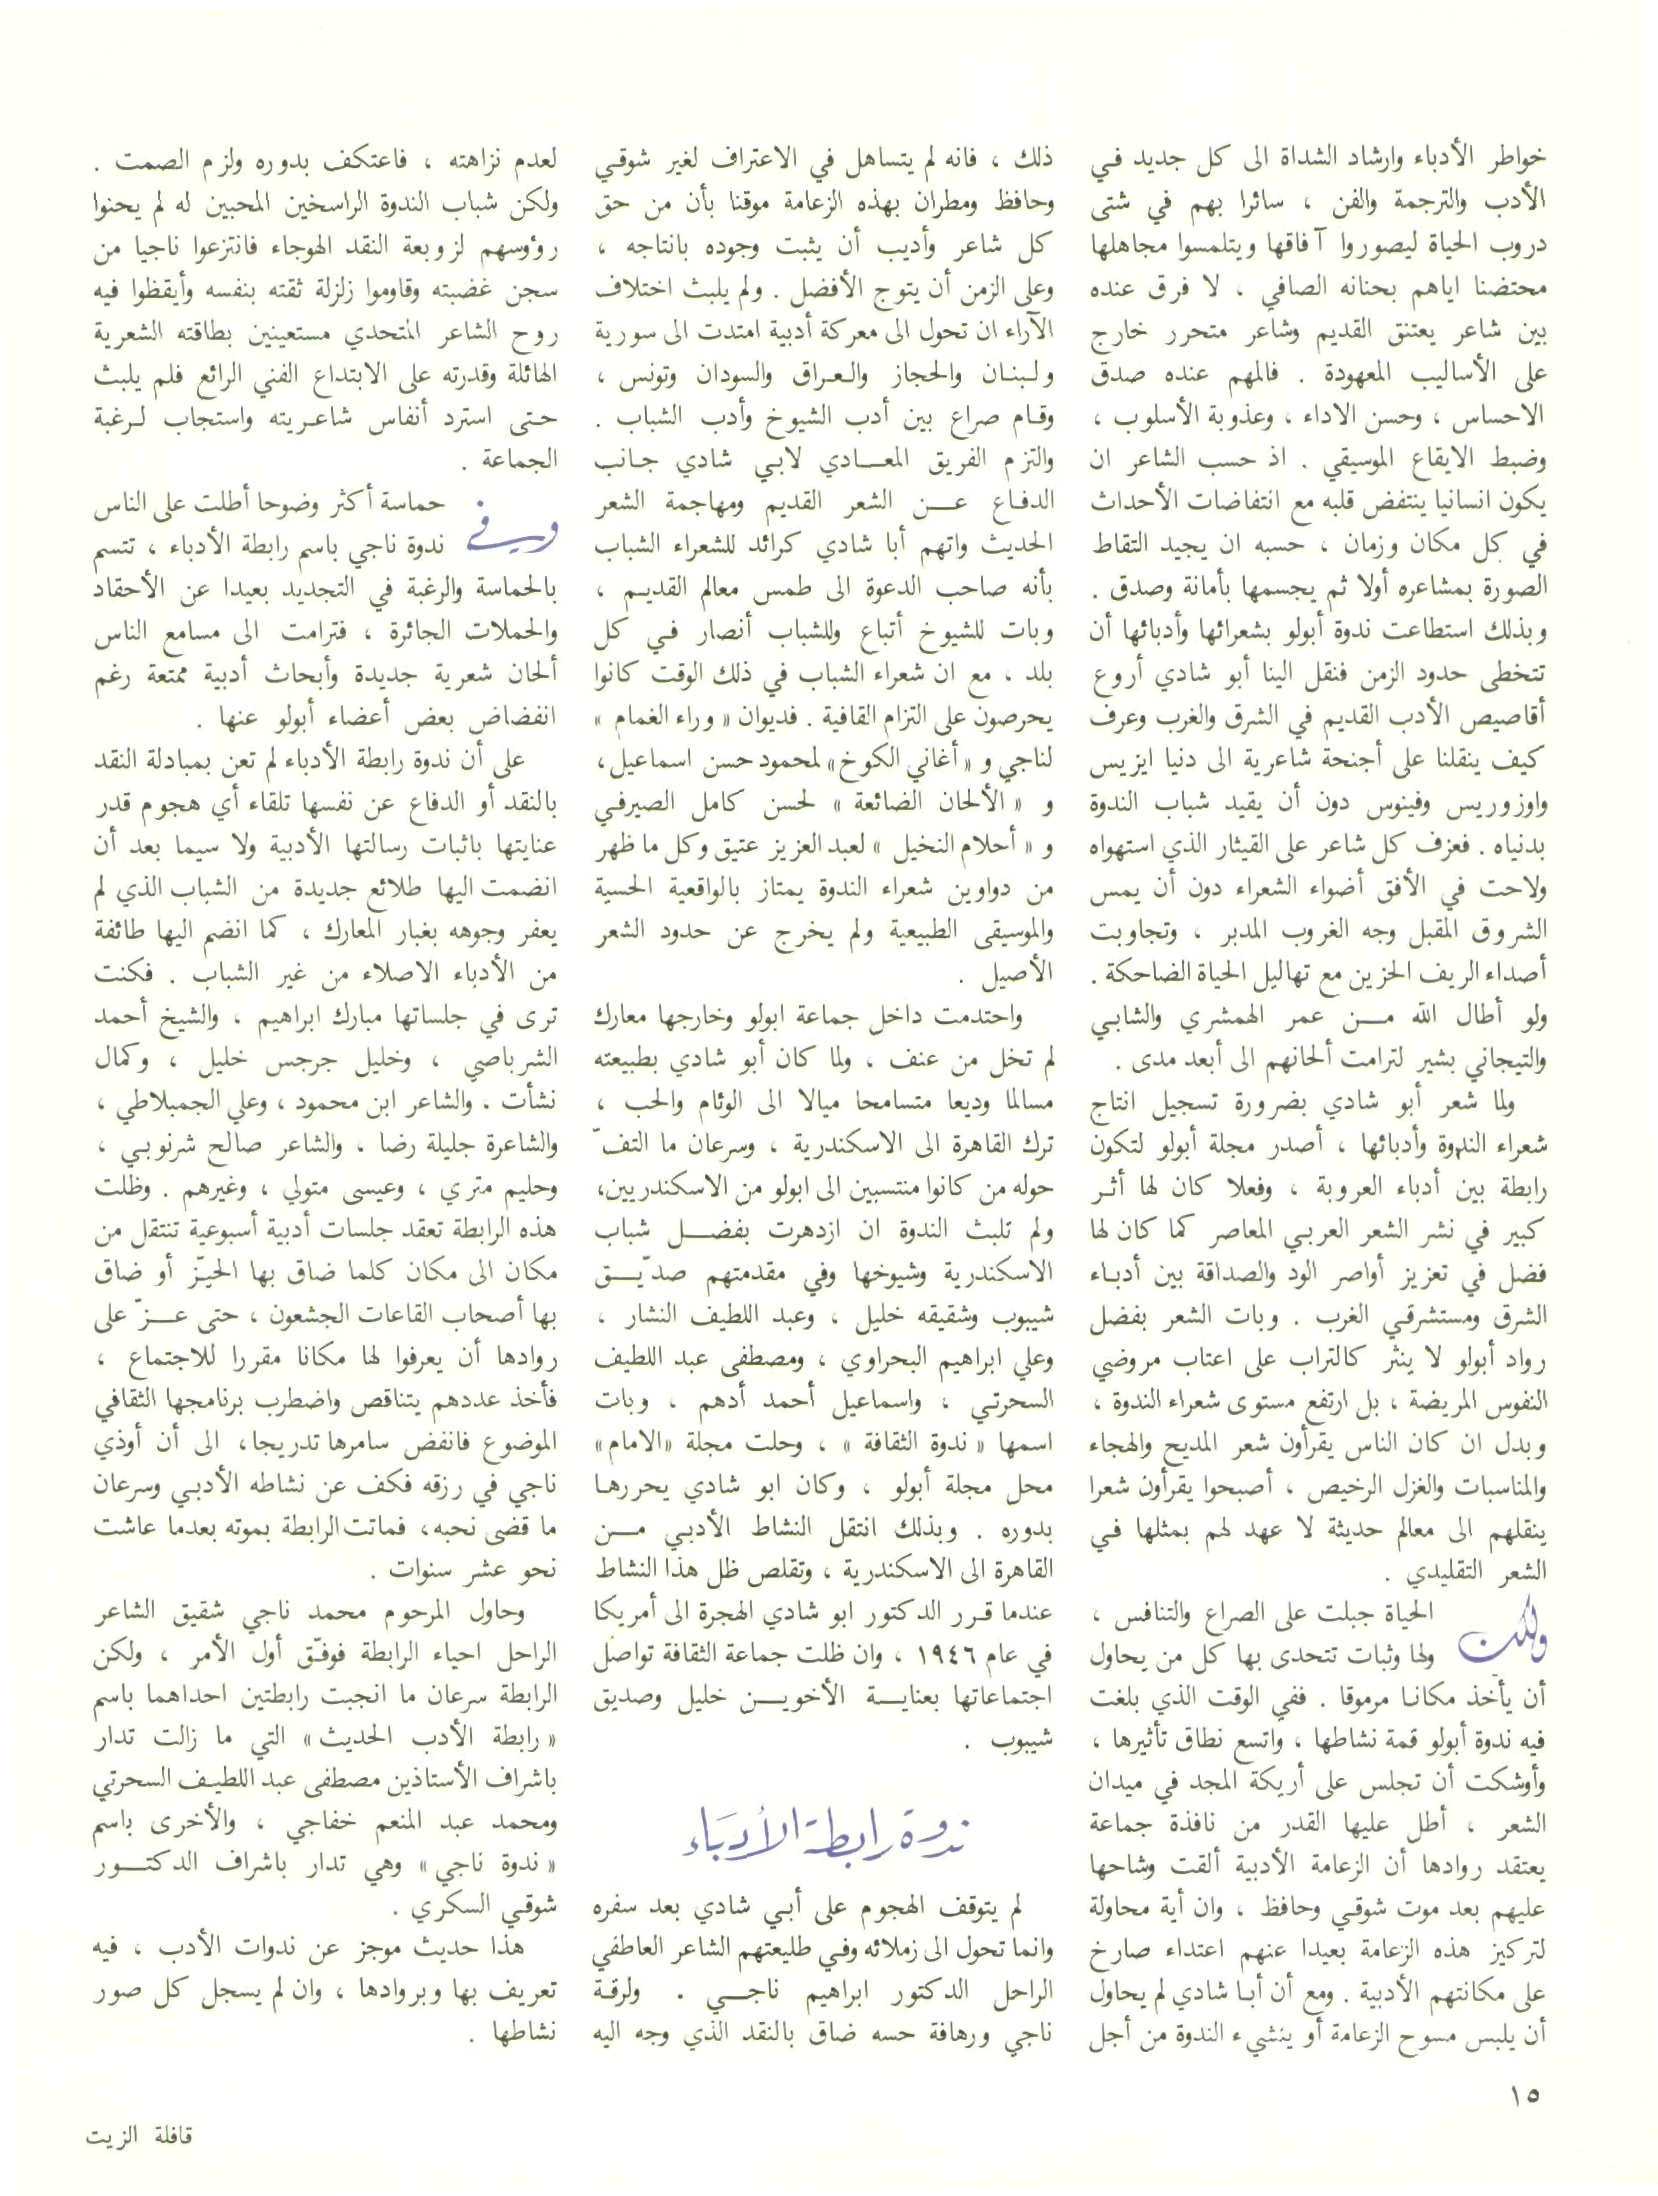 خواطر الأدباء وارشاد الشداة الى كل جديد في
الأدب والترجمة والفن ، سائرا بهم في شتى
دروب الحياة ليصوروا آفاقها ويتلمسوا مجاهلها
محتضنا اياهم بحنانه الصافي ، لا فرق عنده
بين شاعر يعتنق القديم وشاعر متحرر خارج
على الأساليب المعهودة . فالمهم عنده صدق
الاحساس ، وحسن الاداء ، وعذوبة الأسلوب ،
وضبط الايقاع الموسيقي . اذ حسب الشاعر ان
يكون انسانيا ينتفض قلبه مع انتفاضات الأحداث
في كل مكان وزمان ، حسبه ان يجيد التقاط
الصورة بمشاعره أولا ثم يجسمها بأمانة وصدق .
وبذلك استطاعت ندوة أبولو بشعرائها وأدبائها أن
تتخطى حدود الزمن فنقل الينا أبو شادي أروع
أقاصيص الأدب القديم في الشرق والغرب وعرف
كيف ينقلنا على أجنحة شاعرية الى دنيا ايزيس
واوزوريس وفينوس دون أن يقيد شباب الندوة
بدنياه . فعزف كل شاعر على القيثار الذي استهواه
ولاحت في الأفق أضواء الشعراء دون أن يمس
الشروق المقبل وجه الغروب المدبر ، وتجاوبت
أصداء الريف الحزين مع تهاليل الحياة الضاحكة .
ولو أطال الله مـن عمر الهمشري والشابي
والتيجاني بشير لترامت ألحانهم الى أبعد مدى .
ولما شعر أبو شادي بضرورة تسجيل انتاج
شعراء الندوة وأدبائها ، أصدر مجلة أبولو لتكون
رابطة بين أدباء العروبة ، وفعلا كان لها أثـر
كبير في نشر الشعر العربي المعاصر كما كان لها
فضل في تعزيز أواصر الود والصداقة بين أدباء
الشرق ومستشرقي الغرب . وبات الشعر بفضل
رواد أبولو لا ينثر كالتراب على اعتاب مروضي
النفوس المريضة ، بل ارتفع مستوى شعراء الندوة ،
وبدل ان كان الناس يقرأون شعر المديح والهجاء
والمناسبات والغزل الرخيص ، أصبحوا يقرأون شعرا
ينقلهم الى معالم حديثة لا عهد لهم بمثلها في
الشعر التقليدي .
ولكن الحياة جبلت على الصراع والتنافس ،
ولها وثبات تتحدى بها كل من يحاول
أن يأخذ مكانا مرموقا . ففي الوقت الذي بلغت
فيه ندوة أبولو قمة نشاطها ، واتسع نطاق تأثيرها ،
وأوشكت أن تجلس على أريكة المجد في ميدان
الشعر ، أطل عليها القدر من نافذة جماعة
يعتقد روادها أن الزعامة الأدبية ألقت وشاحها
عليهم بعد موت شوقي وحافظ ، وان أية محاولة
لتركيز هذه الزعامة بعيدا عنهم اعتداء صارخ
على مكانتهم الأدبية . ومع أن أبا شادي لم يحاول
أن يلبس مسوح الزعامة أو ينشيء الندوة من أجل
ذلك ، فانه لم يتساهل في الاعتراف لغير شوقي
وحافظ ومطران بهذه الزعامة موقنا بأن من حق
كل شاعر وأديب أن يثبت وجوده بانتاجه ،
وعلى الزمن أن يتوج الأفضل . ولم يلبث اختلاف
الآراء ان تحول الى معركة أدبية امتدت الى سورية
ولبنان والحجاز والعراق والسودان وتونس ،
وقام صراع بين أدب الشيوخ وأدب الشباب .
والتزم الفريق المعـادي لابي شادي جانب
الدفاع عـن الشعر القديم ومهاجمة الشعر
الحديث واتهم أبا شادي كرائد للشعراء الشباب
بأنه صاحب الدعوة الى طمس معالم القديم ،
وبات للشيوخ أتباع وللشباب أنصار في كل
بلد ، مع ان شعراء الشباب في ذلك الوقت كانوا
يحرصون على التزام القافية . فديوان « وراء الغمام »
لناجي و « أغاني الكوخ» لمحمود حسن اسماعيل ،
و « الألحان الضائعة » لحسن كامل الصيرفي
و « أحلام النخيل » لعبد العزيز عتيق وكل ما ظهر
من دواوين شعراء الندوة يمتاز بالواقعية الحسية
والموسيقى الطبيعية ولم يخرج عن حدود الشعر
الأصيل .
واحتدمت داخل جماعة ابولو وخارجها معارك
لم تخل من عنف ، ولما كان أبو شادي بطبيعته
مسالما وديعا متسامحا ميالا الى الوئام والحب ،
ترك القاهرة الى الاسكندرية ، وسرعان ما التفّ
حوله من كانوا منتسبين الى ابولو من الاسكندريين،
ولم تلبث الندوة ان ازدهرت بفضـل شباب
الاسكندرية وشيوخها وفي مقدمتهم صدّيـق
شيبوب وشقيقه خليل ، وعبد اللطيف النشار ،
وعلي ابراهيم البحراوي ، ومصطفى عبد اللطيف
السحرتي ، واسماعيل أحمد أدهم ، وبات
اسمها « ندوة الثقافة » ، وحلت مجلة «الامام»
محل مجلة أبولو ، وكان ابو شادي يحررها
بدوره . وبذلك انتقل النشاط الأدبي مـن
القاهرة الى الاسكندرية ، وتقلص ظل هذا النشاط
عندما قرر الدكتور ابو شادي الهجرة الى أمريكا
في عام ١٩٤٦ ، وان ظلت جماعة الثقافة تواصل
اجتماعاتها بعنايـة الأخويـن خليل وصديق
شيبوب .
ندوة رابطة الأدباء
لم يتوقف الهجوم على أبي شادي بعد سفره
وانما تحول الى زملائه وفي طليعتهم الشاعر العاطفي
الراحل الدكتور ابراهيم ناجـي . ولرقة
ناجي ورهافة حسه ضاق بالنقد الذي وجه اليه
لعدم نزاهته ، فاعتكف بدوره ولزم الصمت .
ولكن شباب الندوة الراسخين المحبين له لم يحنوا
رؤوسهم لزوبعة النقد الهوجاء فانتزعوا ناجيا من
سجن غضبته وقاوموا زلزلة ثقته بنفسه وأيقظوا فيه
روح الشاعر المتحدي مستعينين بطاقته الشعرية
الهائلة وقدرته على الابتداع الفني الرائع فلم يلبث
حتى استرد أنفاس شاعريته واستجاب لرغبة
الجماعة .
وفي حماسة أكثر وضوحا أطلت على الناس
ندوة ناجي باسم رابطة الأدباء ، تتسم
بالحماسة والرغبة في التجديد بعيدا عن الأحقاد
والحملات الجائرة ، فترامت الى مسامع الناس
ألحان شعرية جديدة وأبحاث أدبية ممتعة رغم
انفضاض بعض أعضاء أبولو عنها .
على أن ندوة رابطة الأدباء لم تعن بمبادلة النقد
بالنقد أو الدفاع عن نفسها تلقاء أي هجوم قدر
عنايتها باثبات رسالتها الأدبية ولا سيما بعد أن
انضمت اليها طلائع جديدة من الشباب الذي لم
يعفر وجوهه بغبار المعارك ، كما انضم اليها طائفة
من الأدباء الاصلاء من غير الشباب . فكنت
ترى في جلساتها مبارك ابراهيم ، والشيخ أحمد
الشرباصي ، وخليل جرجس خليل ، وكمال
نشأت ، والشاعر ابن محمود ، وعلي الجمبلاطي ،
والشاعرة جليلة رضا ، والشاعر صالح شرنوبي ،
وحليم متري ، وعيسى متولي ، وغيرهم . وظلت
هذه الرابطة تعقد جلسات أدبية أسبوعية تنتقل من
مكان الى مكان كلما ضاق بها الحيّز أو ضاق
بها أصحاب القاعات الجشعون ، حتى عـزّ على
روادها أن يعرفوا لها مكانا مقررا للاجتماع ،
فأخذ عددهم يتناقص واضطرب برنامجها الثقافي
الموضوع فانفض سامرها تدريجا، الى أن أوذي
ناجي في رزقه فكف عن نشاطه الأدبي وسرعان
ما قضى نحبه، فماتت الرابطة بموته بعدما عاشت
نحو عشر سنوات .
وحاول المرحوم محمد ناجي شقيق الشاعر
الراحل احياء الرابطة فوفّق أول الأمر ، ولكن
الرابطة سرعان ما انجبت رابطتين احداهما باسم
« رابطة الأدب الحديث» التي ما زالت تدار
باشراف الأستاذين مصطفى عبد اللطيف السحرتي
ومحمد عبد المنعم خفاجي ، والأخرى باسم
« ندوة ناجي» وهي تدار باشراف الدكتـور
شوقي السكري .
هذا حديث موجز عن ندوات الأدب ، فيه
تعريف بها وبروادها ، وان لم يسجل كل صور
نشاطها .
١٥
قافلة الزيت